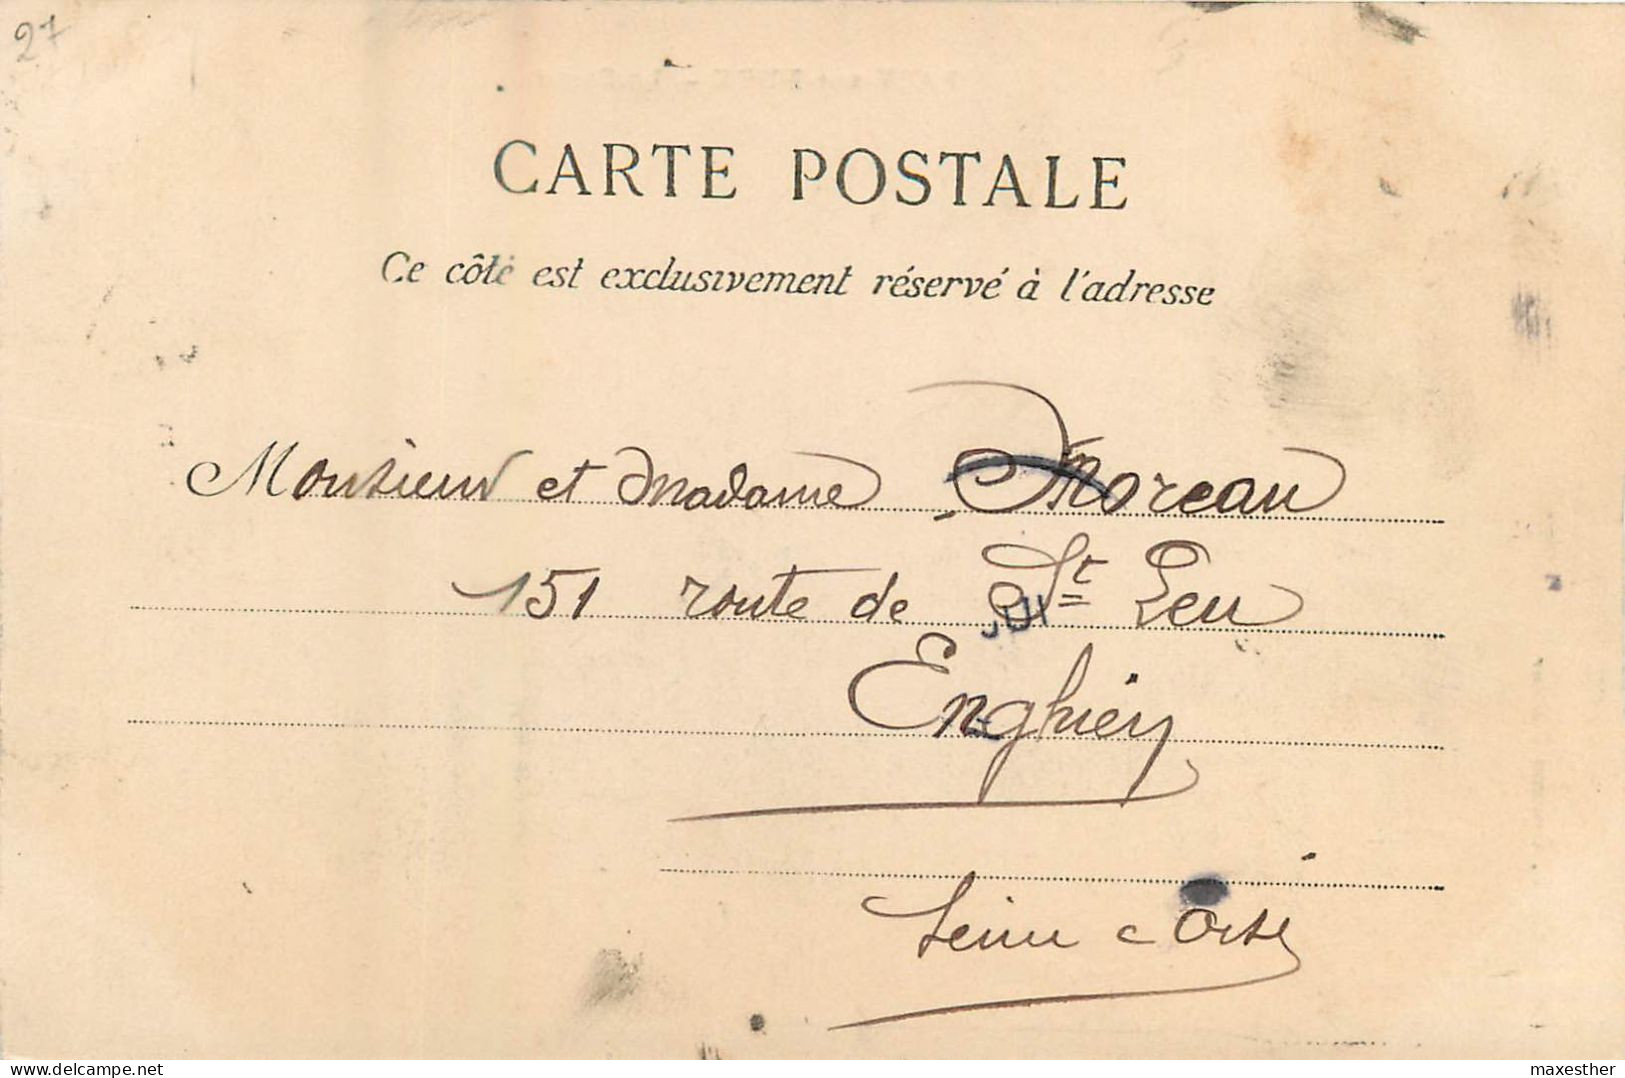 27
CARTE POSTALE
Ce côté est exclusivement réservé à l'adresse
Monsieur et Madame Moreau
151 route de St Leu
Enghien
Seine e Oise
maxesther